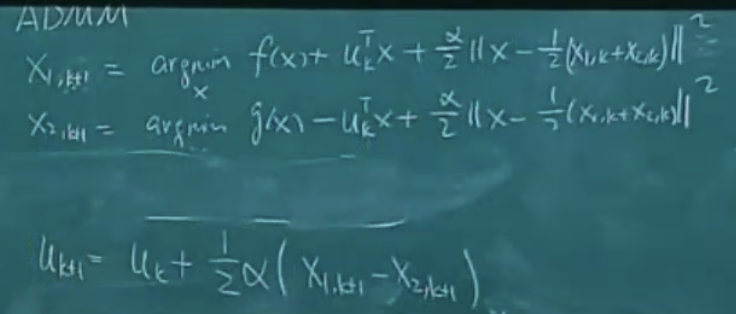 ADMM
X₁,ₖ₊₁ = argmin_x f(x) + uₖᵀx + α/2 ||x - 1/2(X₁,ₖ + X₂,ₖ)||²
X₂,ₖ₊₁ = argmin g(x) - uₖᵀx + α/2 ||x - 1/2(X₁,ₖ + X₂,ₖ)||²
uₖ₊₁ = uₖ + 1/2 α(X₁,ₖ₊₁ - X₂,ₖ₊₁)